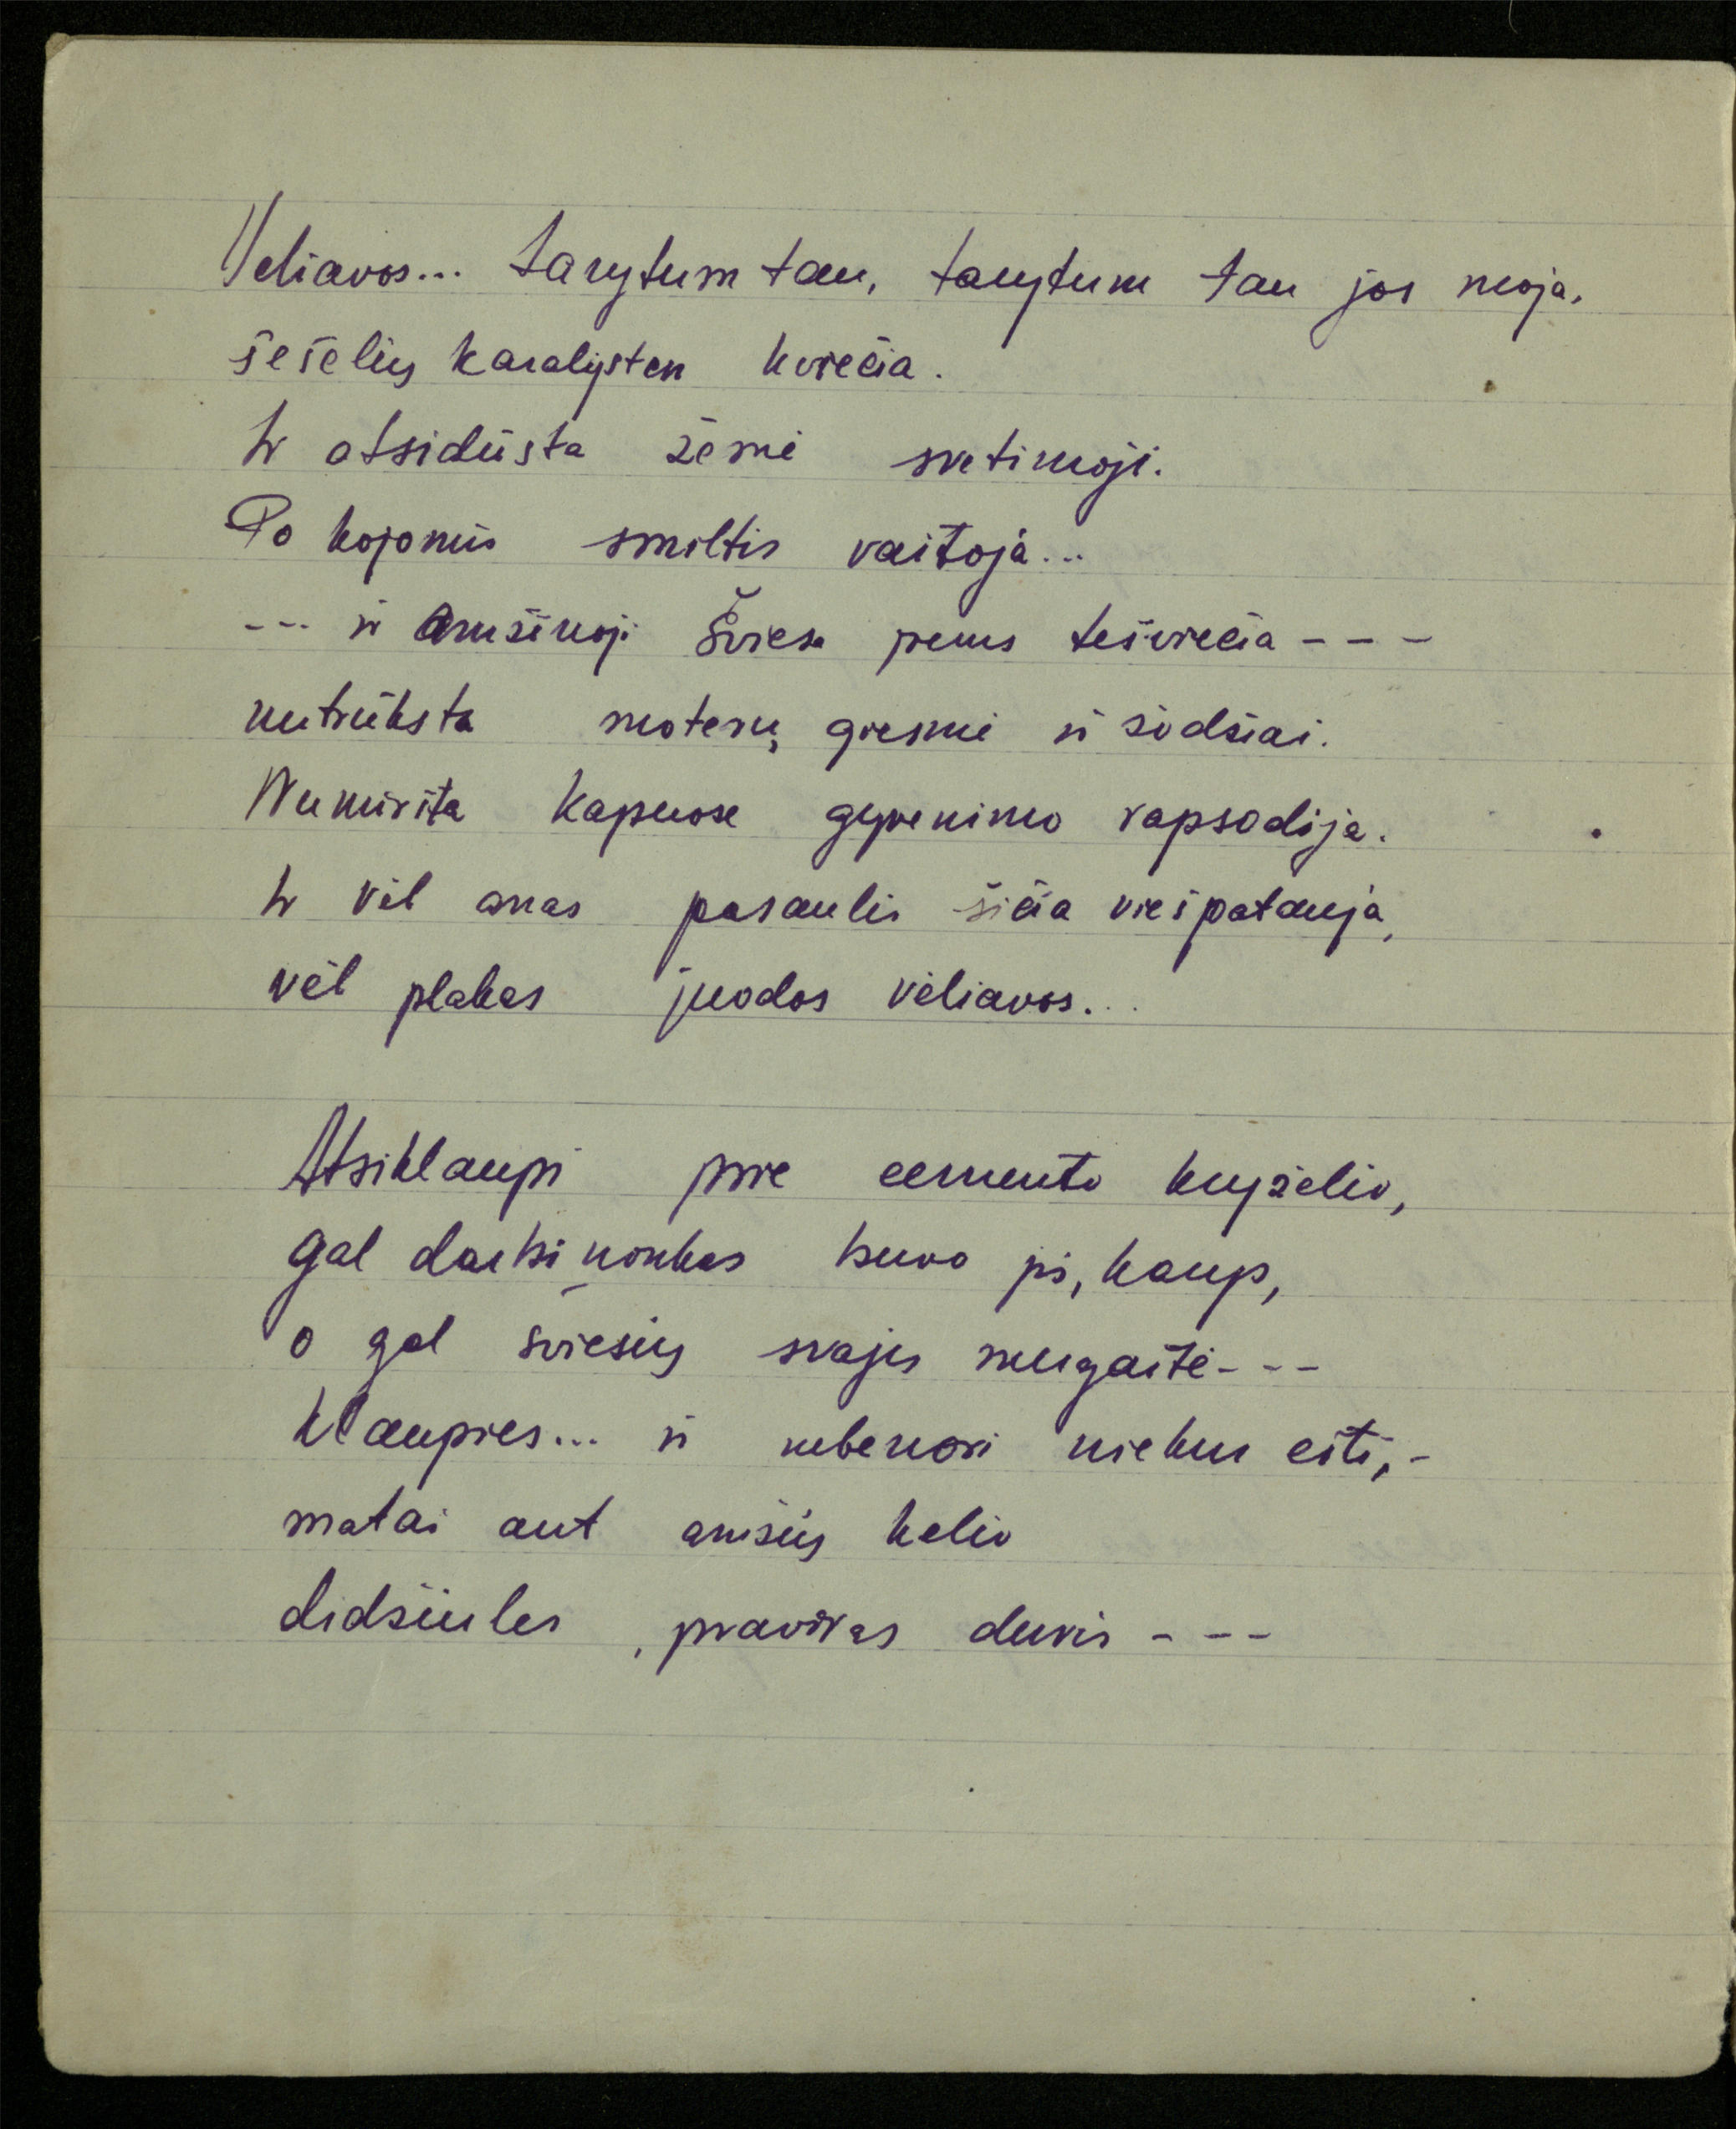 Vėliavos... tarytum tau, tarytum tau jos moja,
šešėlių karalysten kviečia.
Ir atsidūsta žemė svetimoji.
Po kojomis smiltis vaitoja...
--- ir Amžinoji Šviesa jiems tešviečia ---
nutrūksta moterų giesmė ir žodžiai.
Numiršta kapuose gyvenimo rapsodija.
Ir vėl anas pasaulis šičia viešpatauja,
vėl plakas juodos vėliavos...
Atsiklaupi prie cemento kryželio,
gal darbininkas buvo jis, kaip,
o gal šviesių svajų mergaitė ---
Klaupies... ir nebenori niekur eiti, -
matai ant amžių kelio
didžiules, praviras duris ---